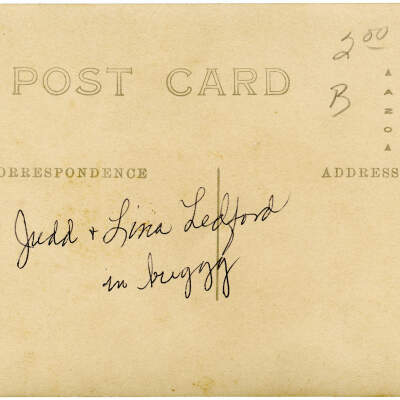 POST CARD
2 00
B
AZO
ORRESPONDENCE
ADDRESS
Judd + Lina Ledford
in buggy